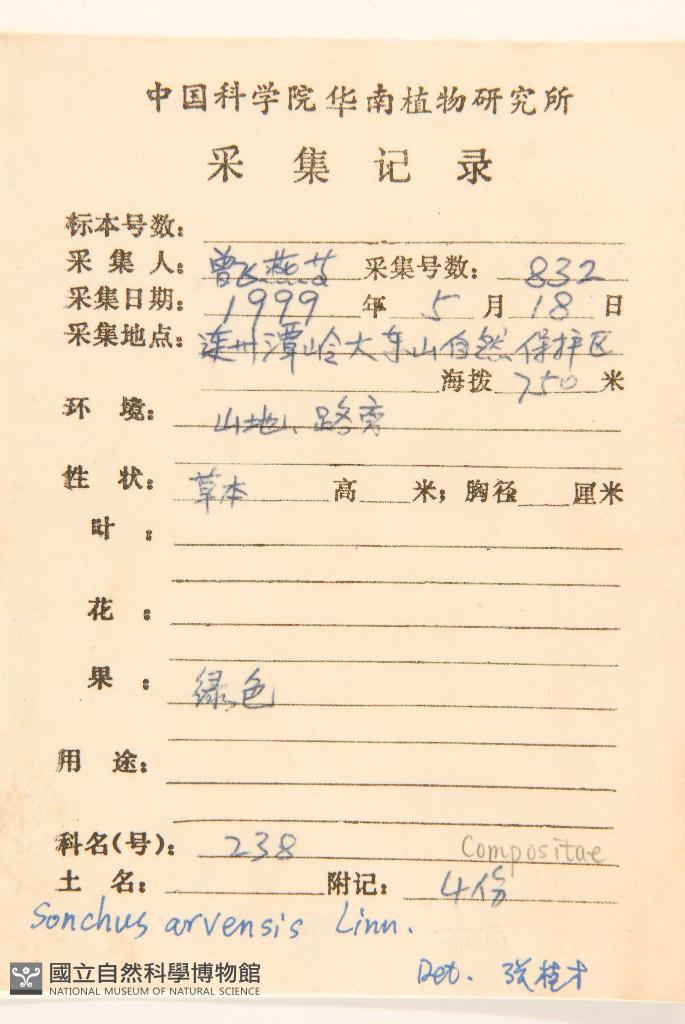 中国科学院华南植物研究所
采集记录
标本号数:
采集人: 曾飞燕 采集号数: 832
采集日期: 1999 年 5 月 18 日
采集地点: 连州潭岭大东山自然保护区
海拨 750 米
环境: 山地、路旁
性状: 草本 高 米; 胸径 厘米
叶:
花:
果: 绿色
用途:
科名(号): 238 Compositae
土名: 附记: 4份
Sonchus arvensis Linn.
Det. 张桂才
國立自然科學博物館
NATIONAL MUSEUM OF NATURAL SCIENCE